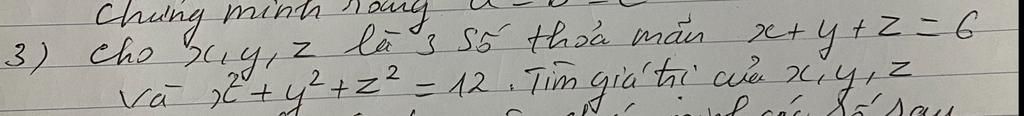 Chứng minh rằng a = b = c
3) Cho x, y, z là 3 số thỏa mãn x + y + z = 6
Và x² + y² + z² = 12. Tìm giá trị của x, y, z
số sau